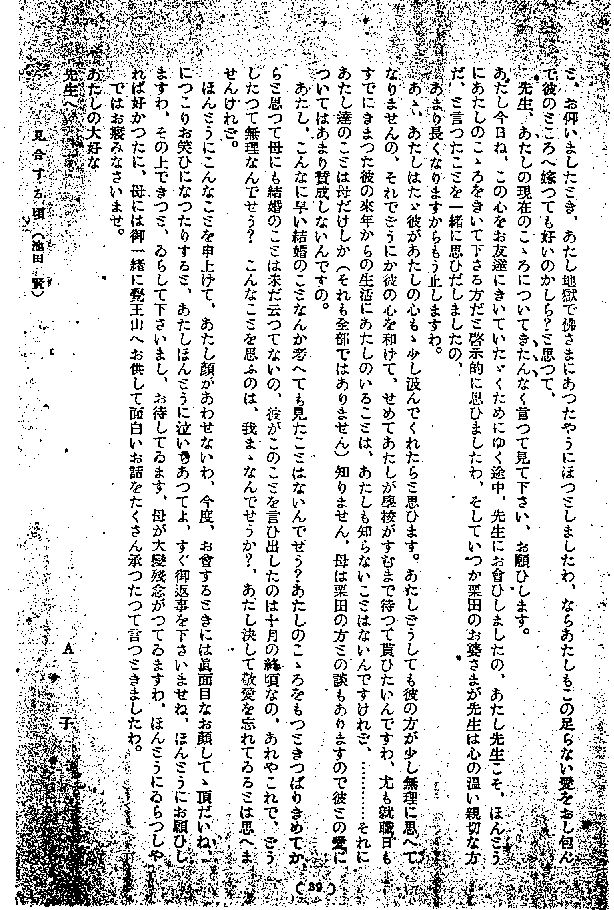 ミ、お仰いましたミき、あたし地獄で佛さまにあつたやうにほつミしましたわ、ならあたしもこの足らない愛をおし包ん
で彼のミころへ嫁つても好いのかしら？ミ思つて、
先生、あたしの現在のこゝろについてきたんなく言つて見て下さい、お願ひします。
あたし今日ね、この心をお友達にきいていたゞくためにゆく途中、先生にお會ひしましたの、あたし先生こそ、ほんミう
にあたしのこゝろをきいて下さる方だミ啓示的に思ひましたわ、そしていつか栗田のお婆さまが先生は心の温い親切な方
だ、ミ言つたこミを一緒に思ひだしましたの、
あまり長くなりますからもう止しますわ。
あゝ、あたしはたゞ彼があたしの心もゝ少し汲んでくれたらミ思ひます。あたしどうしても彼の方が少し無理に思へて
なりませんの、それでどうにか彼の心を和けて、せめてあたしが學校がすむまで待つて貰ひたいんですわ、尤も就職日も
すでにきまつた彼の來年からの生活にあたしのいるこミは、あたしも知らないこミはないんですけれど、…………それに
あたし達のこミは母だけしか（それも全部ではありません）知りません、母は栗田の方ミの談もありますので彼ミの愛に
ついてはあまり賛成しないんですの。
あたし、こんなに早い結婚のこミなんか考へても見たこミはないんでせう？あたしのこゝろをもつミきつぱりきめてか
らミ思つて母にも結婚のこミは未だ云つてないの、彼がこのこミを言ひ出したのは十月の終頃なの、あれやこれで、どう
したつて無理なんでせう？　こんなこミを思ふのは、我まゝなんでせうか？、あだし決して敬愛を忘れてゐるミは思へま
せんけれど。
ほんミうにこんなこミを申上げて、あたし顔があわせないわ、今度、お會するミきには眞面目なお顔してゝ頂だいね、
につこりお笑ひになつたりするミ、あたしほんミうに泣いきあつてよ、すぐ御返事を下さいませね、ほんミうにお願ひし
ますわ、その上できつミ、ゐらして下さいまし、お待してゐます、母が大變残念がつてゐますわ、ほんミうにゐらつしや
れば好かつたに、母には御一緒に覺王山へお供して面白いお話をたくさん承つたつて言つミきましたわ。
ではお寢みなさいませ。
あたしの大好な
先生へ
A子
見合する頃（池田　賢）
（39）